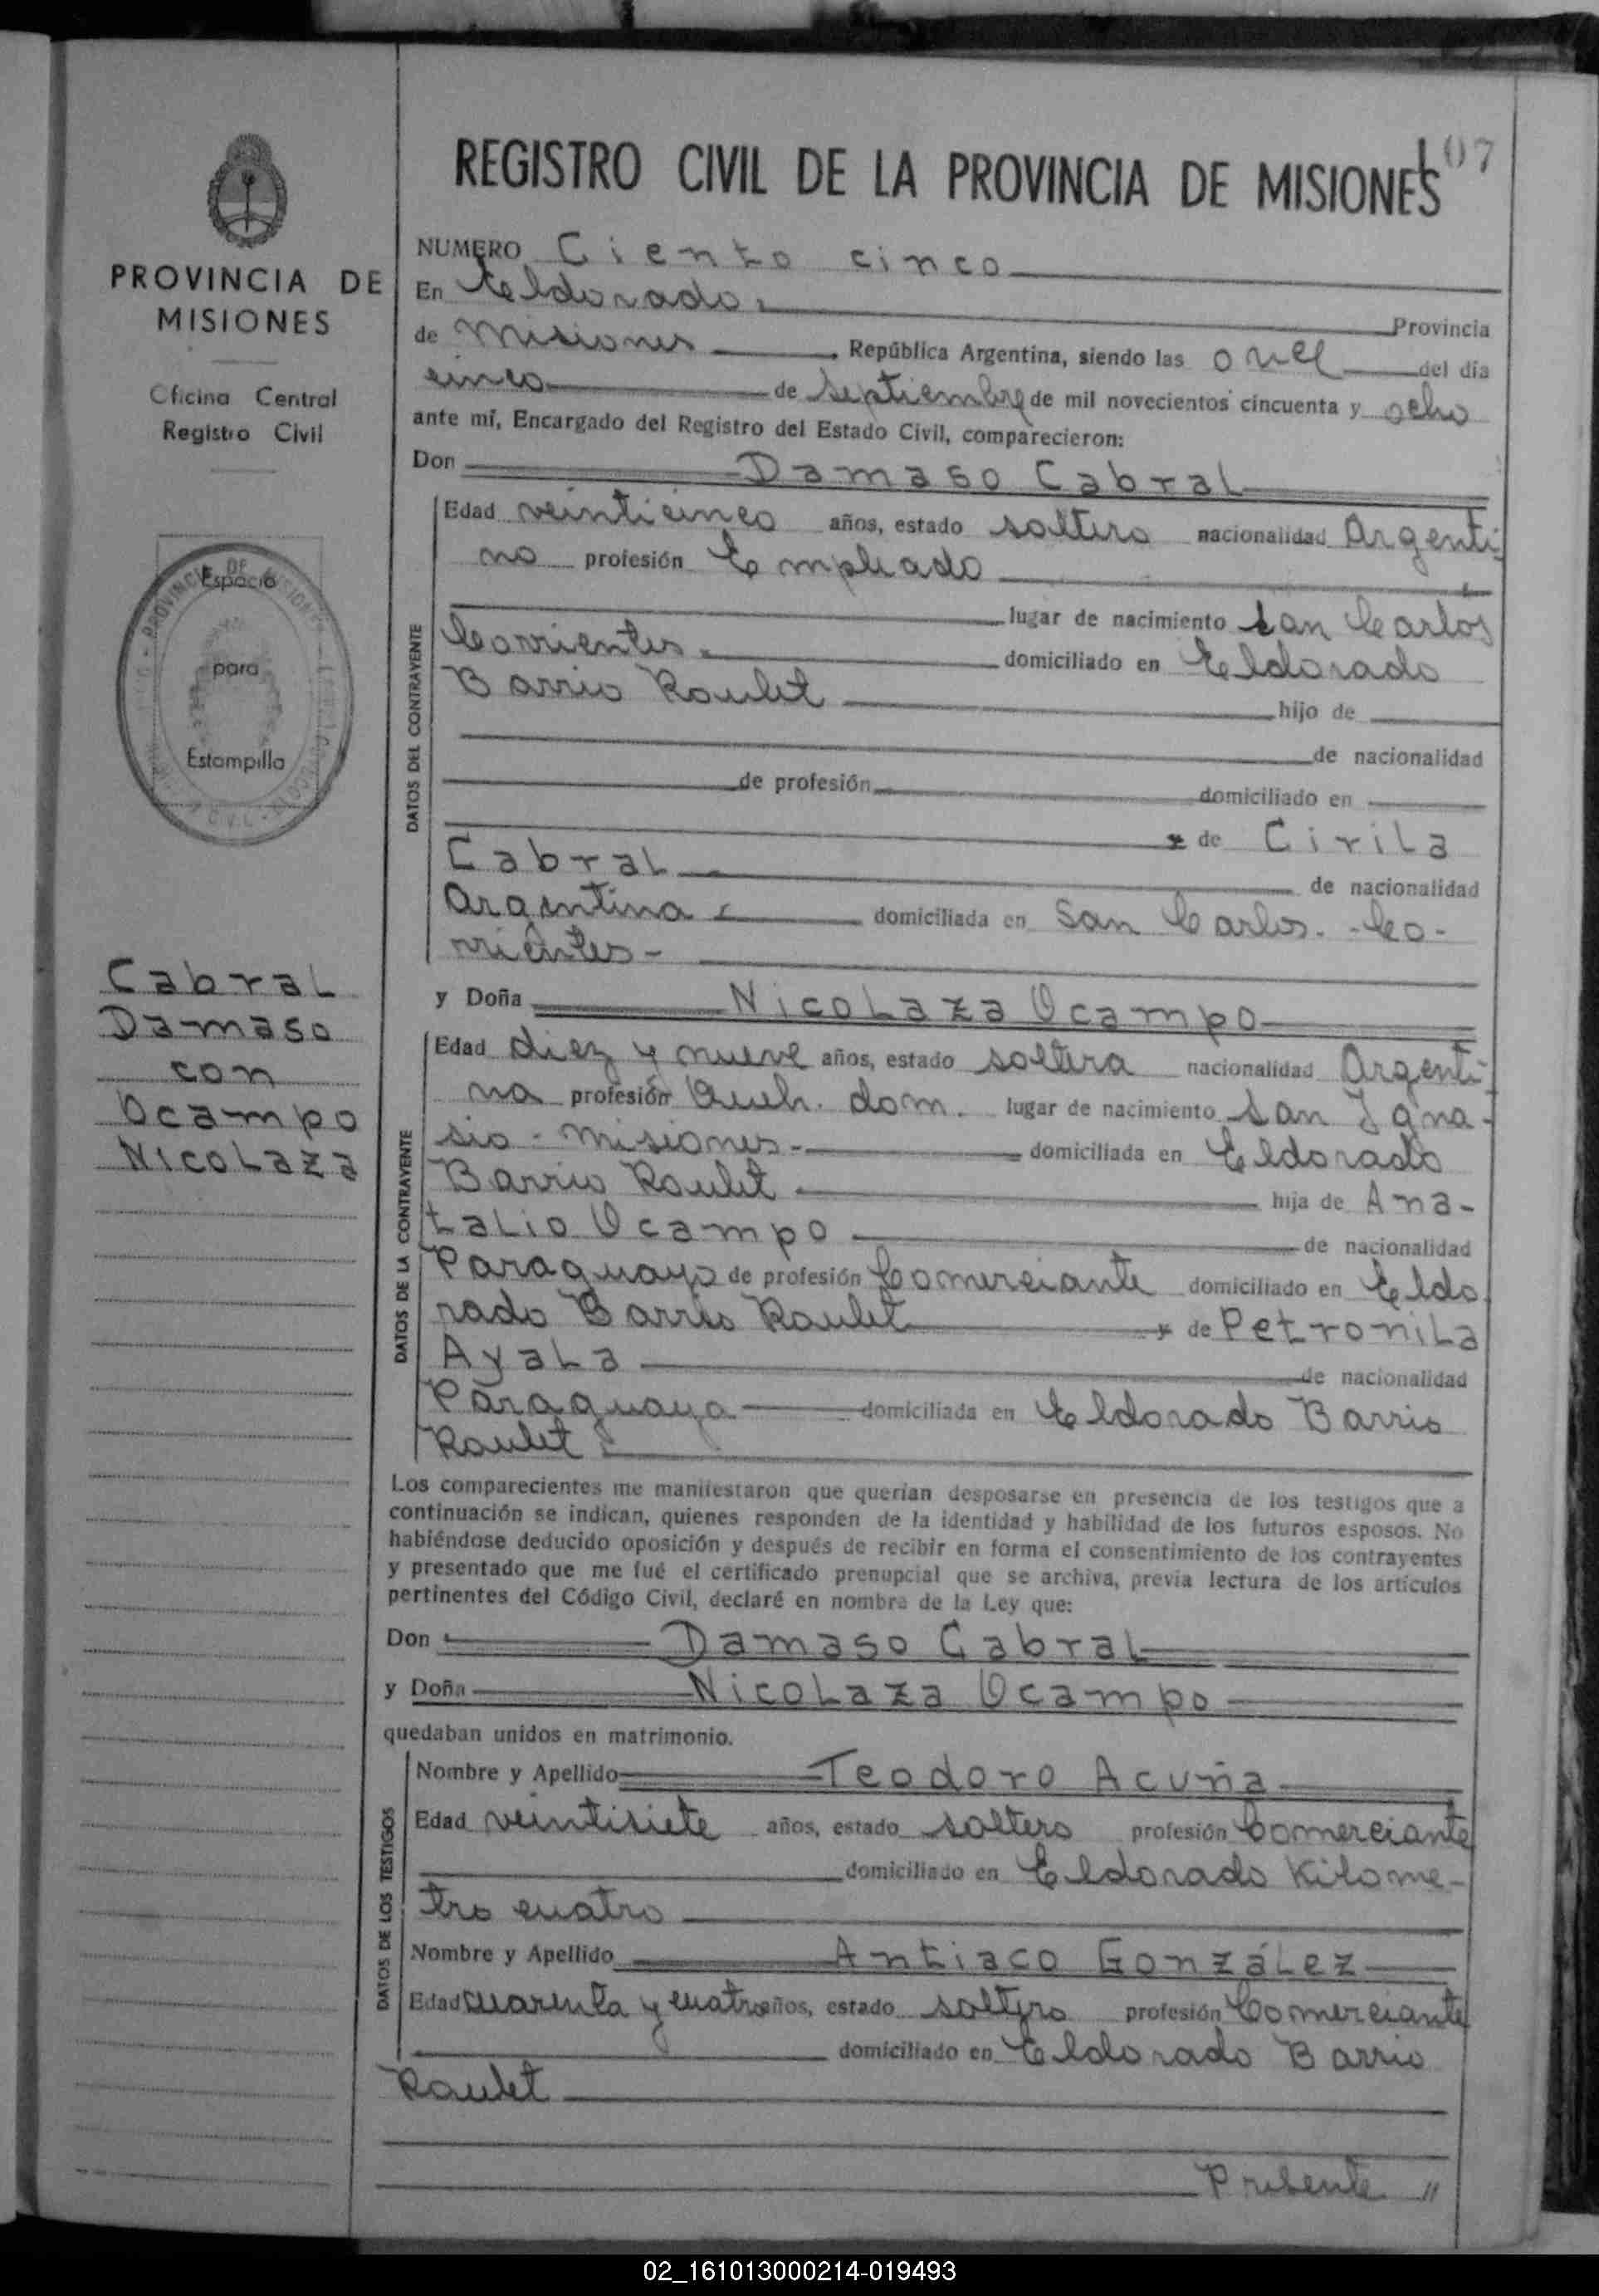 107
REGISTRO CIVIL DE LA PROVINCIA DE MISIONES
PROVINCIA DE
MISIONES
Oficina Central
Registro Civil
Espacio
para
Estampilla
Cabral
Damaso
con
Ocampo
Nicolaza
NUMERO Ciento cinco
En Eldorado. Provincia
de Misiones, República Argentina, siendo las once del día
cinco de septiembre de mil novecientos cincuenta y ocho
ante mí, Encargado del Registro del Estado Civil, comparecieron:
Don Damaso Cabral
DATOS DEL CONTRAYENTE
Edad veinticinco años, estado soltero nacionalidad Argenti-
no profesión Empleado
lugar de nacimiento San Carlos
Corrientes. domiciliado en Eldorado
Barrio Roulet hijo de
de nacionalidad
de profesión domiciliado en
de Cirila
Cabral de nacionalidad
Argentina domiciliada en San Carlos. - Co-
rrientes -
y Doña Nicolaza Ocampo
DATOS DE LA CONTRAYENTE
Edad diez y nueve años, estado soltera nacionalidad Argenti-
na profesión Queh. dom. lugar de nacimiento San Igna-
sio - Misiones - domiciliada en Eldorado
Barrio Roulet hija de Ana-
talio Ocampo de nacionalidad
Paraguayo de profesión Comerciante domiciliado en Eldo
rado Barrio Roulet de Petronila
Ayala de nacionalidad
Paraguaya domiciliada en Eldorado Barrio
Roulet
Los comparecientes me manifestaron que querían desposarse en presencia de los testigos que a
continuación se indican, quienes responden de la identidad y habilidad de los futuros esposos. No
habiéndose deducido oposición y después de recibir en forma el consentimiento de los contrayentes
y presentado que me fué el certificado prenupcial que se archiva, previa lectura de los artículos
pertinentes del Código Civil, declaré en nombre de la Ley que:
Don Damaso Cabral
y Doña Nicolaza Ocampo
quedaban unidos en matrimonio.
DATOS DE LOS TESTIGOS
Nombre y Apellido Teodoro Acuña
Edad veintisiete años, estado soltero profesión Comerciante
domiciliado en Eldorado Kilome-
tro cuatro
Nombre y Apellido Antiaco González
Edad cuarenta y cuatro años, estado soltero profesión Comerciante
domiciliado en Eldorado Barrio
Roulet
Presente "
02_161013000214-019493